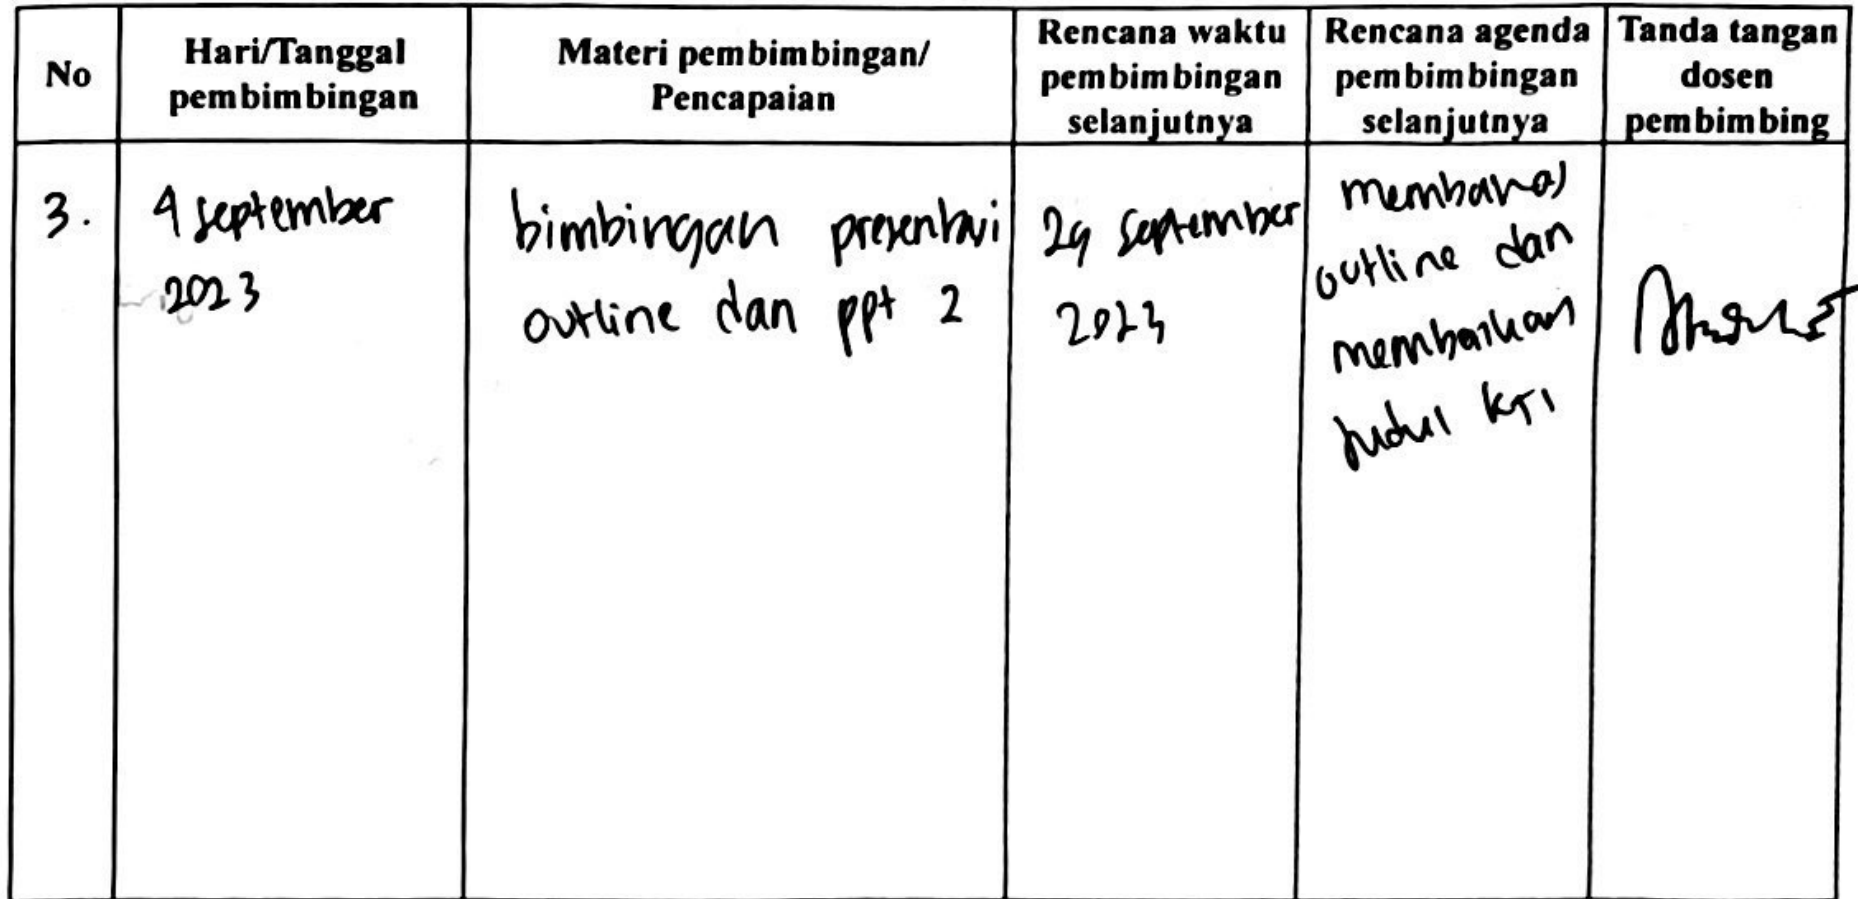 No
Hari/Tanggal
pembimbingan
Materi pembimbingan/
Pencapaian
Rencana waktu
pembimbingan
selanjutnya
Rencana agenda
pembimbingan
selanjutnya
Tanda tangan
dosen
pembimbing
3.
4 september
2023
bimbingan presentasi
outline dan ppt 2
29 September
2023
membahas
outline dan
membaikan
judul KTI